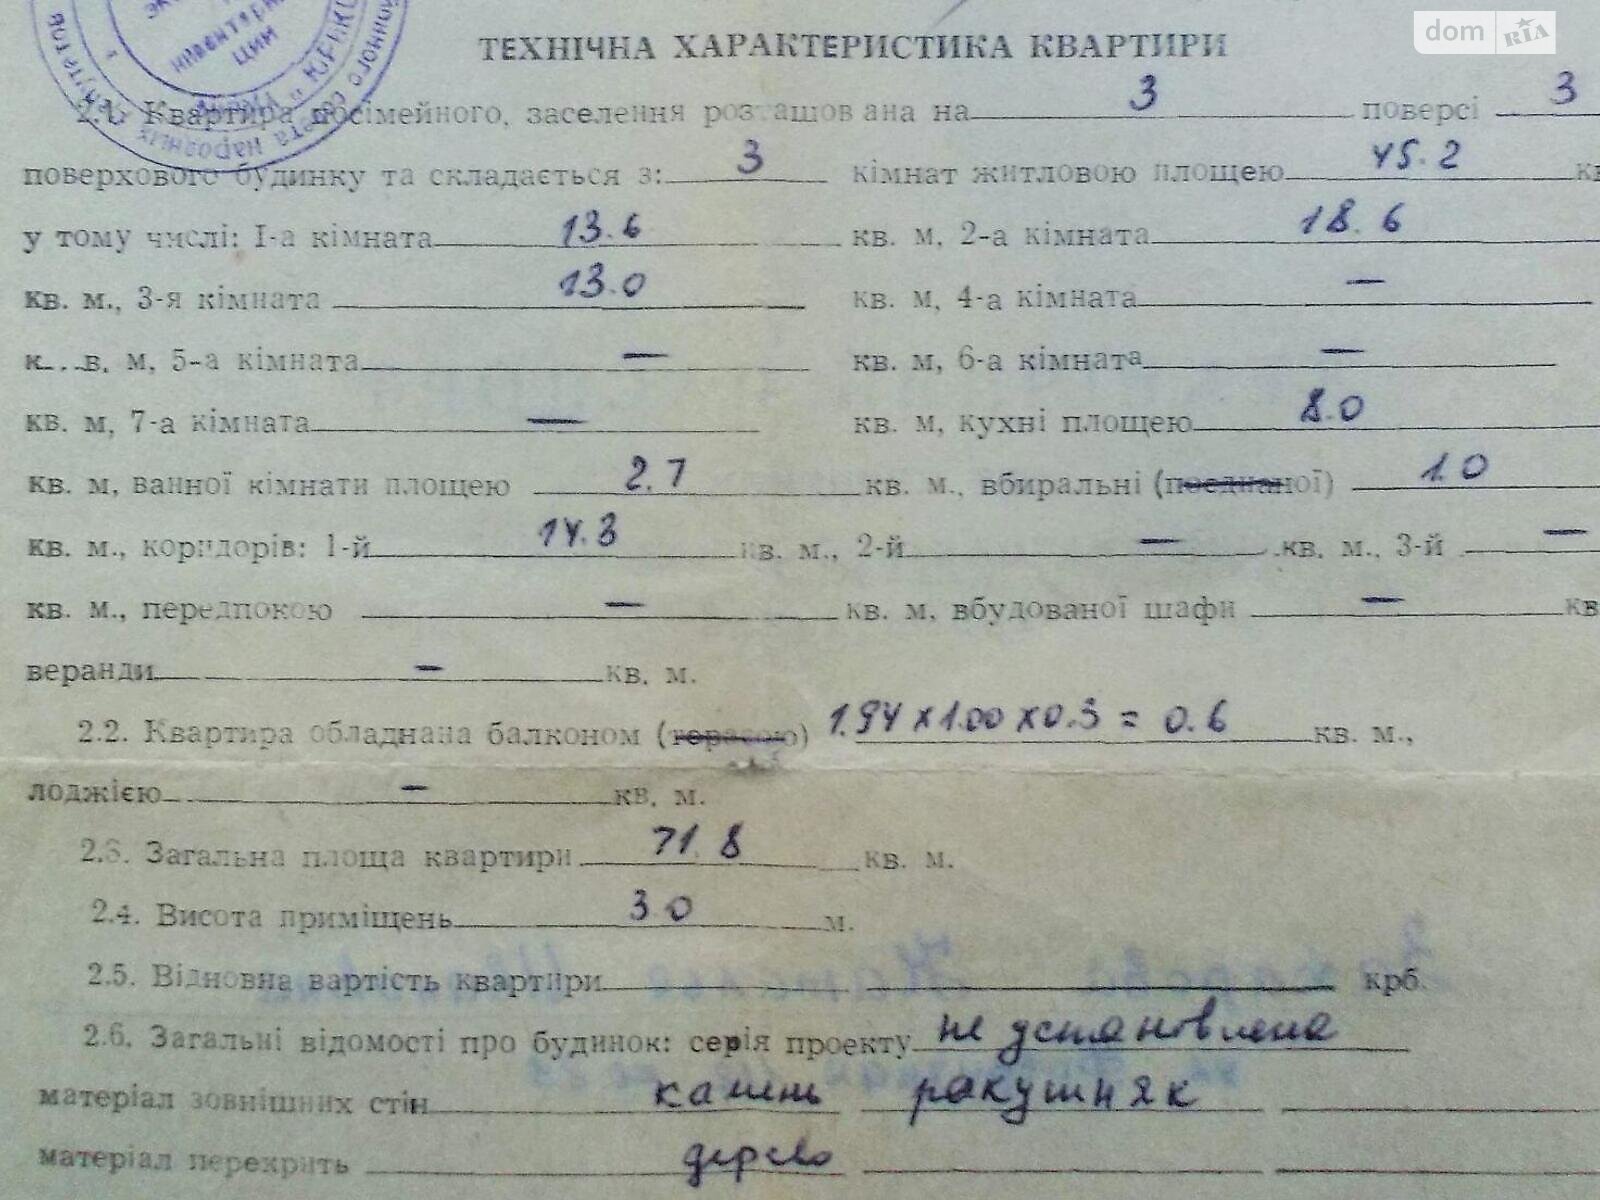 dom RIA
инвентариза
ции
народных
ТЕХНІЧНА ХАРАКТЕРИСТИКА КВАРТИРИ
2.1. Квартира посімейного, заселення розташована на 3 поверсі 3
поверхового будинку та складається з: 3 кімнат житловою площею 45.2 кв
у тому числі: 1-а кімната 13.6 кв. м, 2-а кімната 18.6
кв. м., 3-я кімната 13.0 кв. м, 4-а кімната —
к...в. м, 5-а кімната — кв. м, 6-а кімната —
кв. м, 7-а кімната — кв. м, кухні площею 8.0
кв. м, ванної кімнати площею 2.7 кв. м., вбиральні (поєднаної) 1.0
кв. м., коридорів: 1-й 14.3 кв. м., 2-й — кв. м., 3-й —
кв. м., передпокою — кв. м, вбудованої шафи — кв
веранди — кв. м.
2.2. Квартира обладнана балконом (терасою) 1.94 x 1.00 x 0.3 = 0.6 кв. м.,
лоджією — кв. м.
2.3. Загальна площа квартири 71.8 кв. м.
2.4. Висота приміщень 3 0 м.
2.5. Відновна вартість квартири крб.
2.6. Загальні відомості про будинок: серія проекту не установлена
матеріал зовнішних стін камень ракушняк
матеріал перекрить дерево